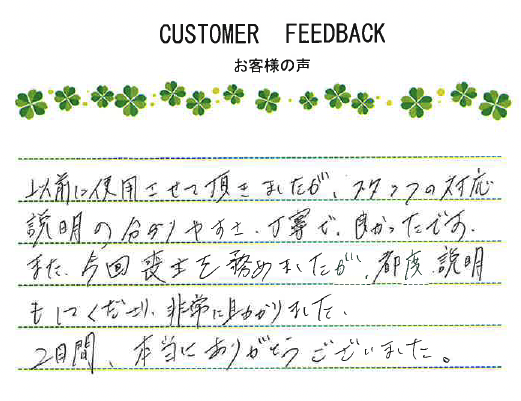 CUSTOMER FEEDBACK
お客様の声
以前に使用させて頂きましたが、スタッフの対応
説明の分りやすさ、丁寧で、良かったです。
また、今回喪主を務めましたが、都度、説明
もしてくださり、非常に助かりました。
2日間、本当にありがとうございました。